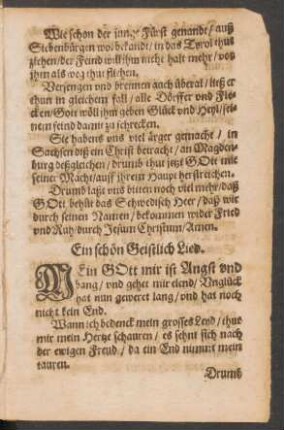 Wie schon der junge Fürst genandt/ auß
Siebenbürgen wol bekandt/ in das Tyrol thut
ziehen/ der Feind will ihm nicht halt mehr/ vor
ihm als weg thut fliehen.
Versengen und brennen gach überal/ ließ er
thun in gleichem fall/ alle Dörffer und Fle-
cken/ Gott wöll ihm geben Glück und Heyl/ sei-
nem feind damit zu schrecken.
Sie habens uns viel ärger gemacht/ in
Sachsen diß ein Christ betracht/ an Magden-
burg deßgleichen/ drumb thut jetzt GOtt mit
seiner Macht/ auff ihrem Haupt herstreichen.
Drumb last uns bitten noch viel mehr/ daß
GOtt behüt das Schwedisch Heer/ daß wir
durch seinen Namen/ bekommen wider Fried
vnd Ruh durch Jesum Christum/ Amen.
Ein schön Geistlich Lied.
MEin GOtt mir ist Angst vnd
bang/ vnd gehet mir elend/ Vnglück
hat nun geweret lang/ vnd has noch
nicht kein End.
Wann ich bedenck mein grosses Leyd/ thut
mir mein Hertze schauren/ es sehnt sich nach
der ewigen Freud/ da ein End nimmt mein
tauren.
Drumb